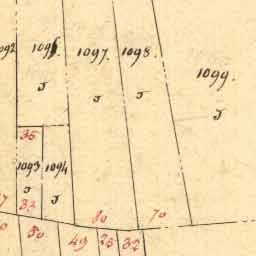 1092
1096
1097.
1098.
1099.
J
J
J
J
35
1093
1094
J
J
33
80
70
50
49
25
32